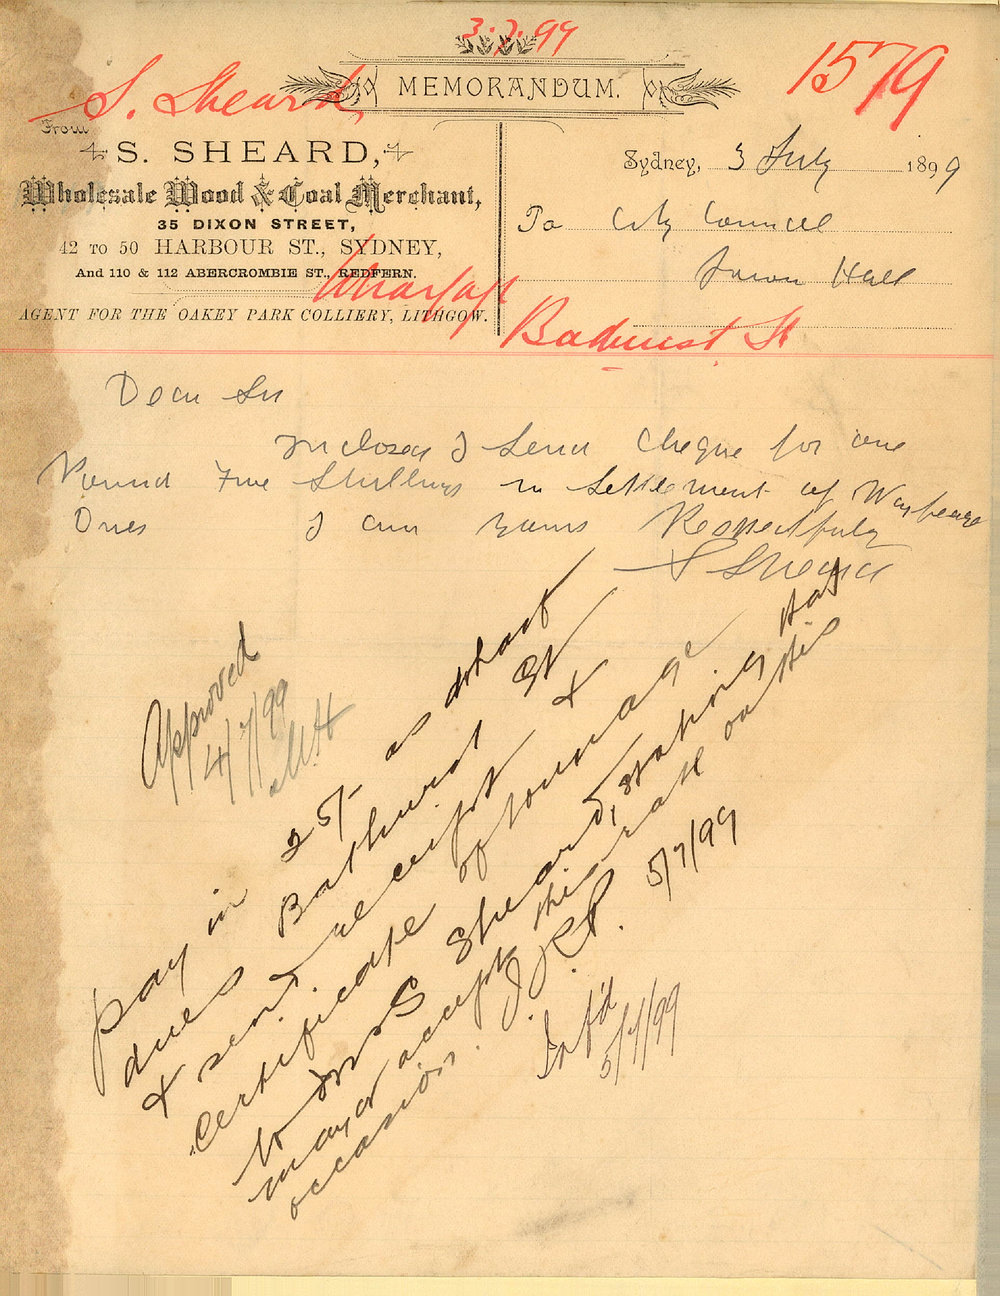 3.7.99
1579
S. Sheard,
MEMORANDUM.
From
S. SHEARD,
Wholesale Wood & Coal Merchant,
35 DIXON STREET,
42 TO 50 HARBOUR ST., SYDNEY,
And 110 & 112 ABERCROMBIE ST., REDFERN.
AGENT FOR THE OAKEY PARK COLLIERY, LITHGOW.
Sydney, 3 July 1899
To City Council
Town Hall
Wharfage
Bathurst St
Dear Sir
Inclosed I Send Cheque for one
Pound Five Shillings in Settlement of Warfeage
Dues I am yours Respectfuly
S Sheard
Approved
4/7/99
pay in 25/- as wharf
dues Bathurst St
& send receipt &
certificate of tonnage
to Mr S Sheard, stating that
mayor accepts this rate on this
occasion. 5/7/99
Inf'd
5/7/99